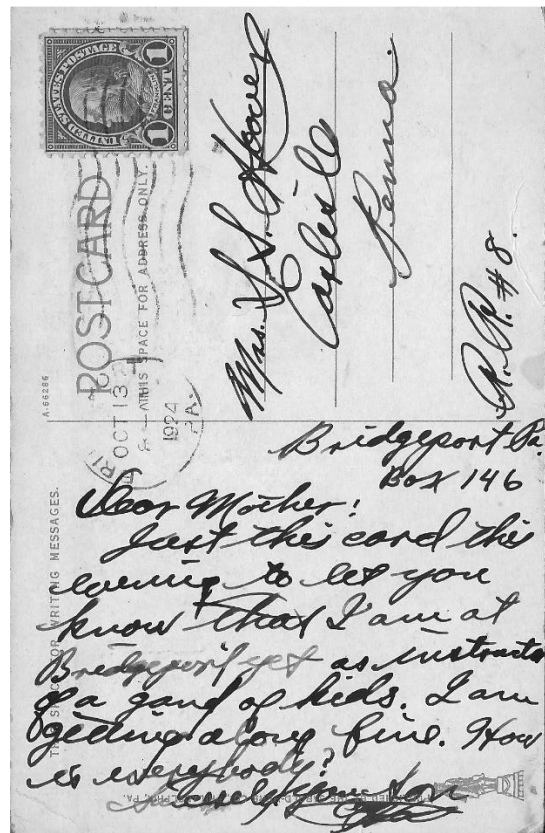 UNITED STATES POSTAGE
FRANKLIN
1 CENT 1
POSTCARD
THIS SPACE FOR ADDRESS ONLY.
A-66286
OCT 13
1924
PA.
Mrs. S. S. Hoover
Carlisle
Penna.
R.R. #8.
THIS SPACE FOR WRITING MESSAGES.
Bridgeport Pa.
Box 146
Dear Mother:
Just this card this
evening to let you
know that I am at
Bridgeport yet as instructor
of a gang of kids. I am
getting along fine. How
is everybody?
Sincerely your Son